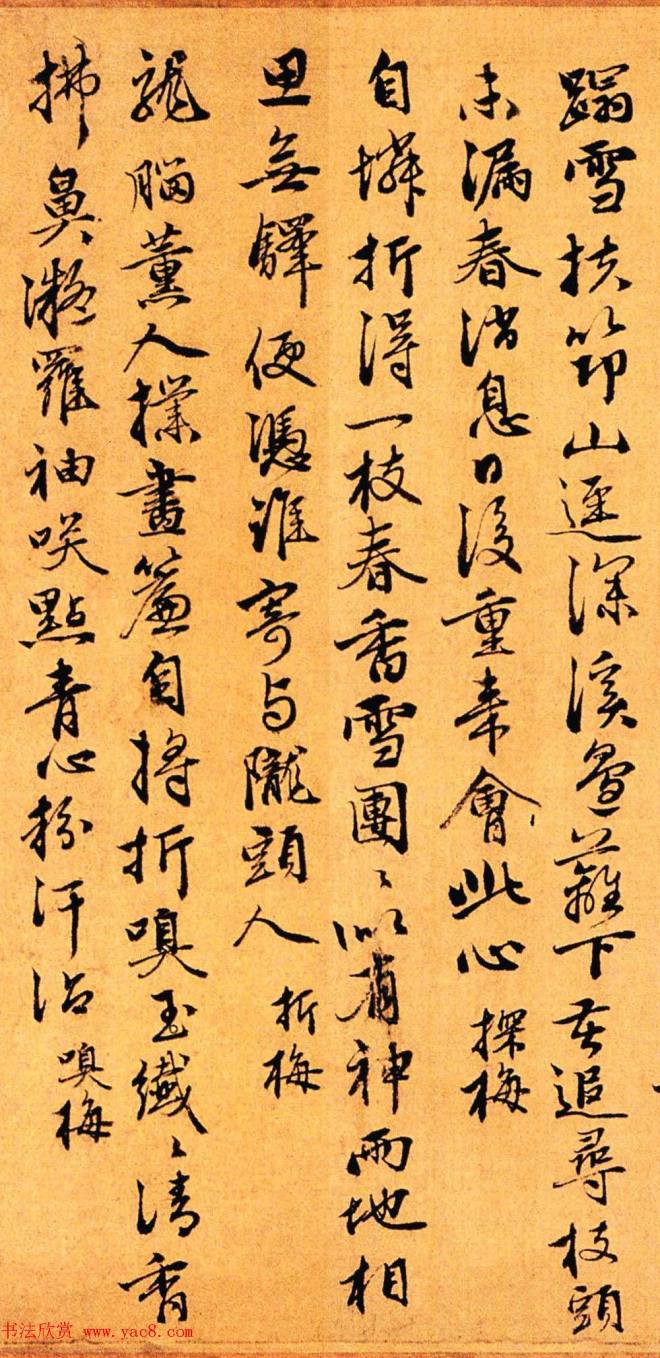 蹋雪扶筇山逕深溪邊籬下苦追尋枝頭
未漏春消息日後重来會此心 探梅
自憐折得一枝春香雪團〻似有神兩地相
思無驛便憑誰寄与隴頭人 折梅
龍腦薰人撲畫簾自將折嗅玉纖〻清香
拂鼻凝羅袖笑點青心粉汗沾 嗅梅
书法欣赏 www.yac8.com